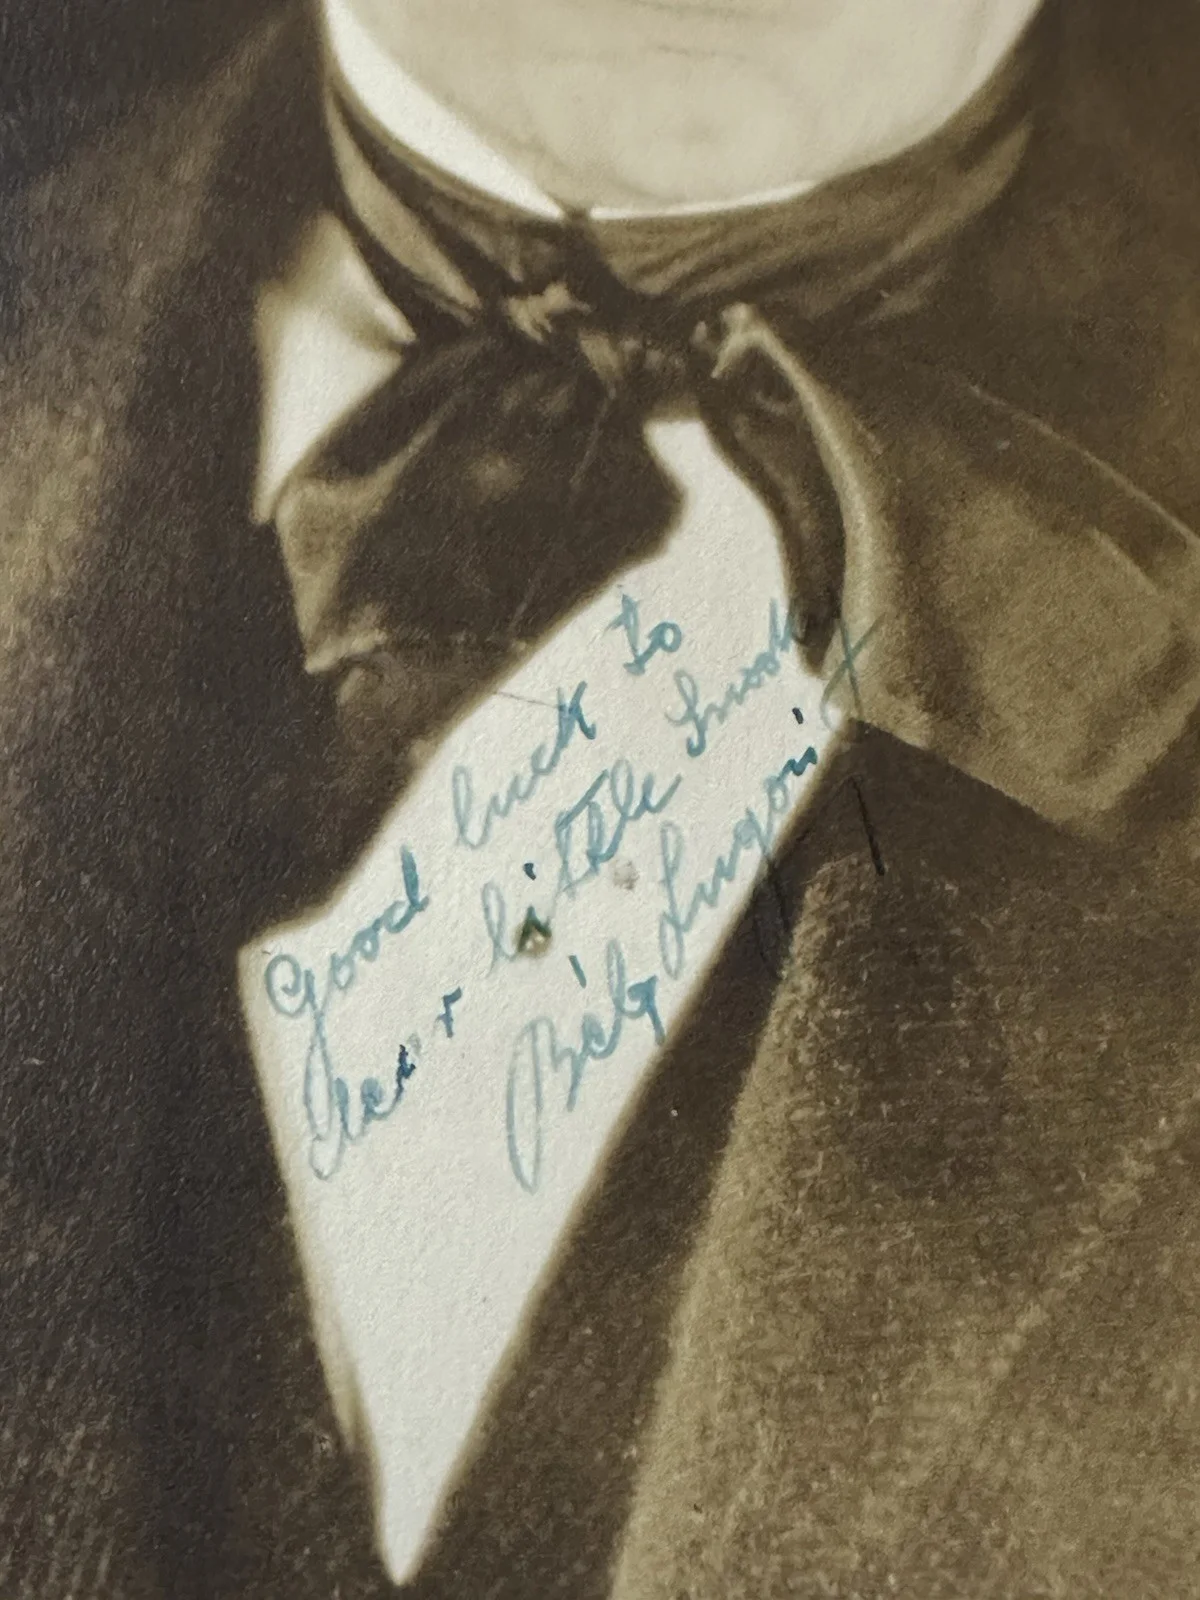 Good luck to
dear little Snooky
Béla Lugosi